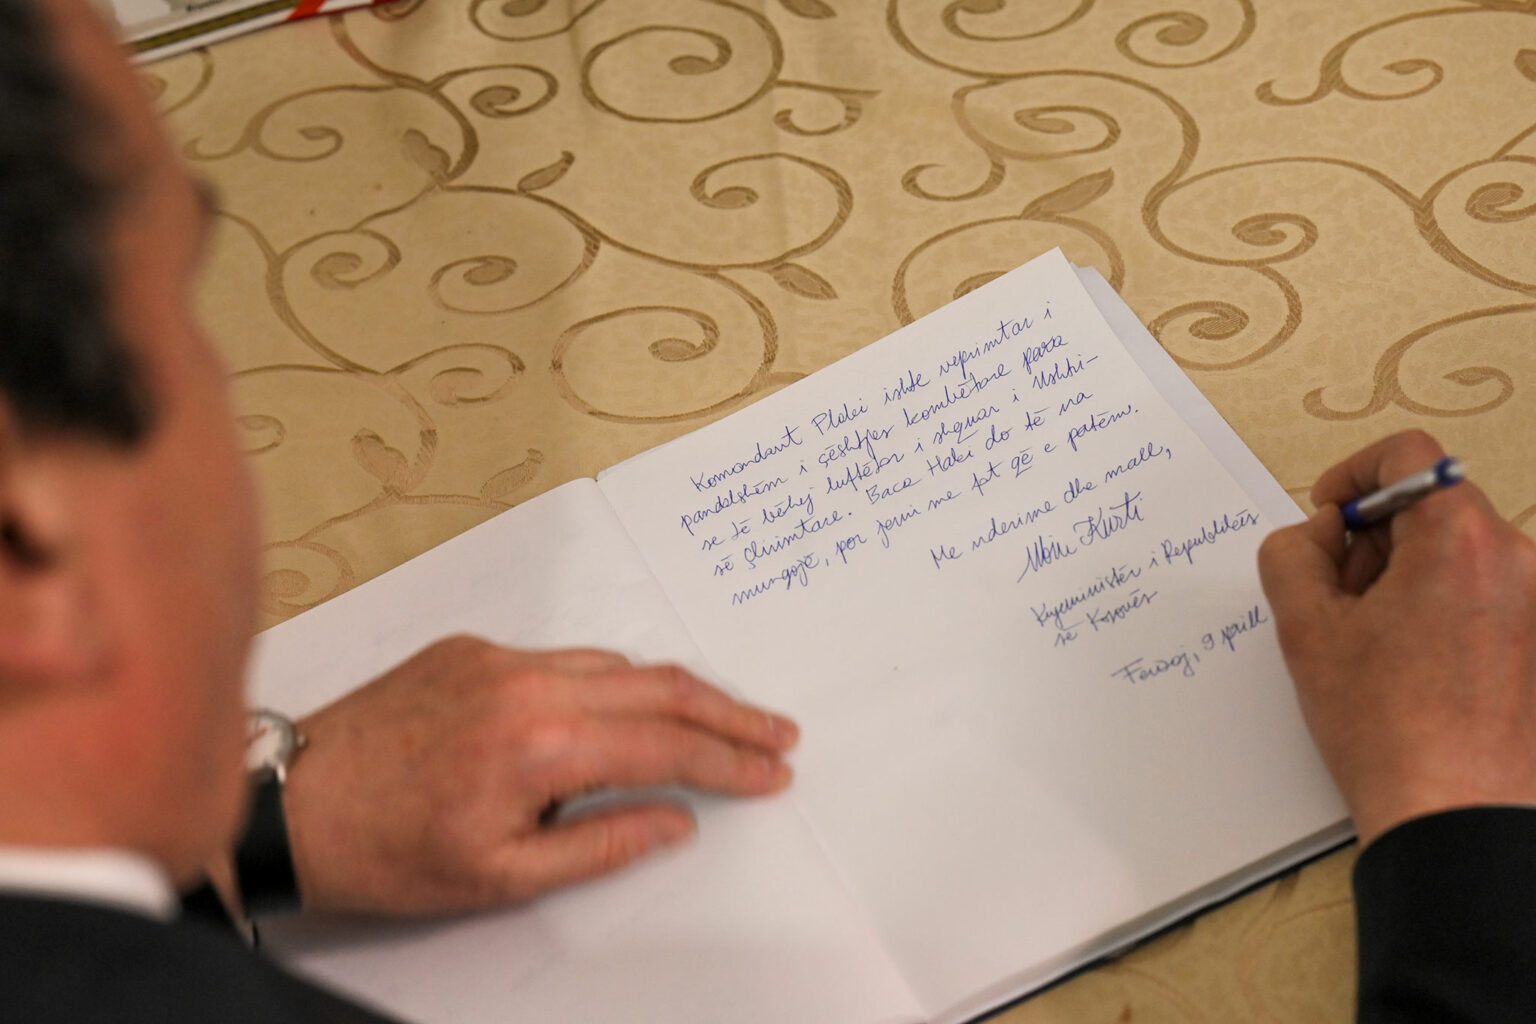 Komandant Plaku ishte veprimtar i
pandalshëm i çështjes kombëtare para
se të bëhej luftëtar i shquar i Ushtri-
së Çlirimtare. Baca Haki do të na
mungojë, por jemi me fat që e patëm.
Me nderime dhe mall,
Albin Kurti
Kryeministër i Republikës
së Kosovës
Ferizaj, 9 prill